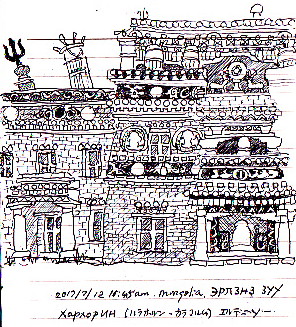 2017/7/12 am. mongolia, ЭРДЭНЭ ЗУУ
ХАРХОРИН (ハラホリン・カラコルム)